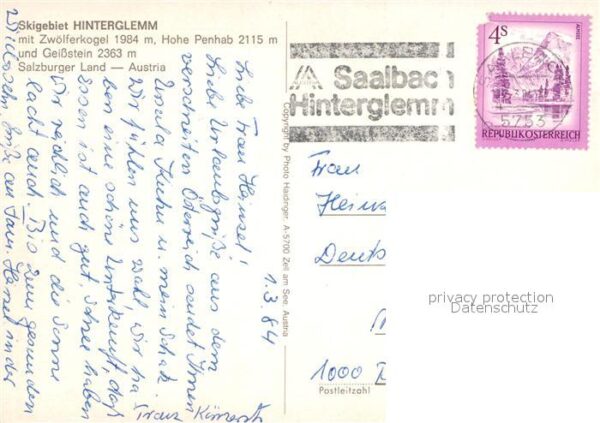 Skigebiet HINTERGLEMM
mit Zwölferkogel 1984 m, Hohe Penhab 2115 m
und Geißstein 2363 m
Salzburger Land — Austria
1.3.84
Liebe Frau Hensel!
Liebe Urlaubsgrüße aus dem
verschneiten Österreich sendet Ihnen
Ursula Kuhn u. mein Schatz.
Wir fühlen uns wohl, wir ha-
ben eine schöne Unterkunft, das
Essen ist auch gut, Schnee haben
wir reichlich und die Sonne
lacht auch. Bis zum gesunden
Grüße an Fam. Hensel in der
Franz
Copyright by Photo Haidinger, A-5700 Zell am See, Austria
Saalbach
Hinterglemm
4S
ALMSEE
REPUBLIK ÖSTERREICH
5753
Frau
Deuts
1000
Postleitzahl
privacy protection
Datenschutz